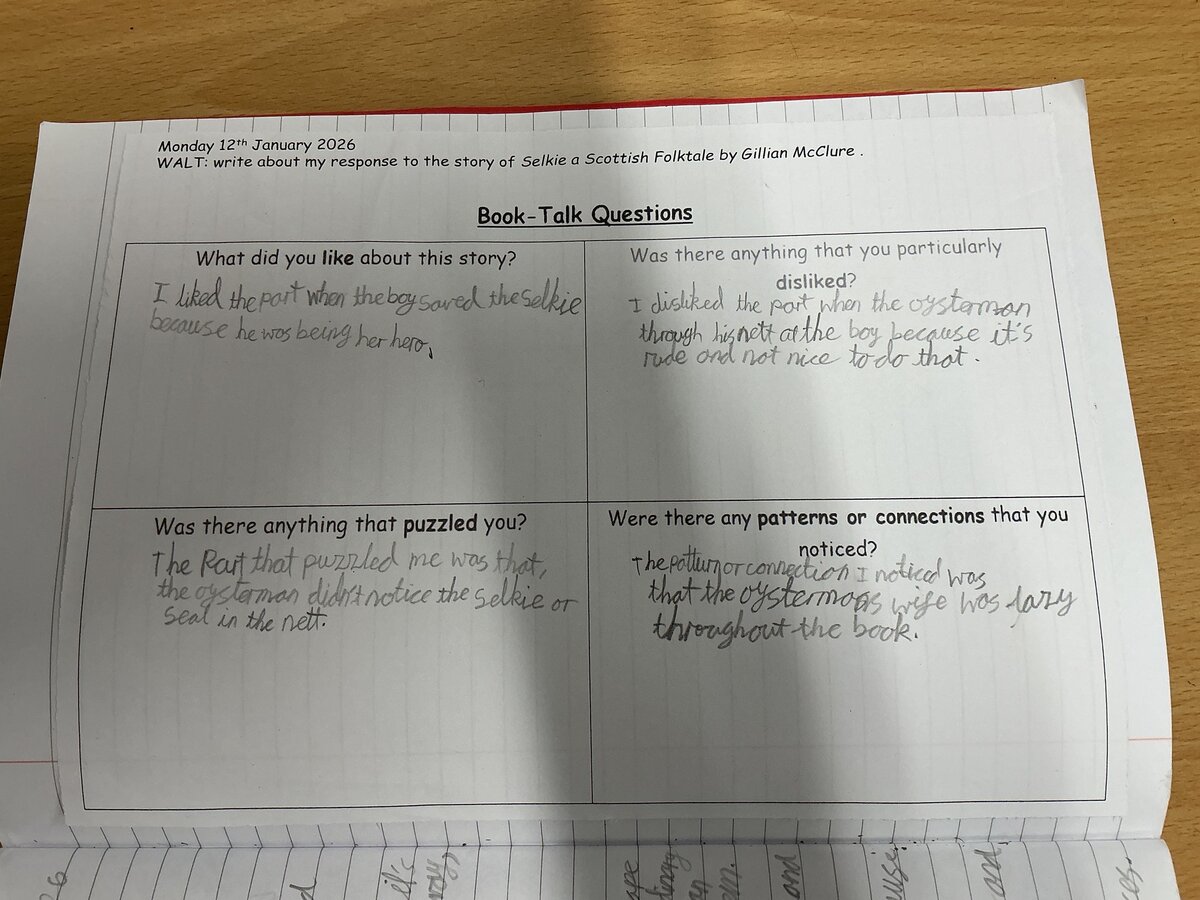 Monday 12th January 2026
WALT: write about my response to the story of Selkie a Scottish Folktale by Gillian McClure .
Book-Talk Questions
What did you like about this story?
I liked the part when the boy saved the selkie
because he was being her hero,
Was there anything that you particularly
disliked?
I disliked the part when the oysterman
through his nett at the boy because it's
rude and not nice to do that.
Was there anything that puzzled you?
The Part that puzzled me was that,
the oysterman didn't notice the selkie or
seal in the nett.
Were there any patterns or connections that you
noticed?
The patturn or connection I noticed was
that the oystermans wife was lazy
throughout the book.
6
it's
and
and